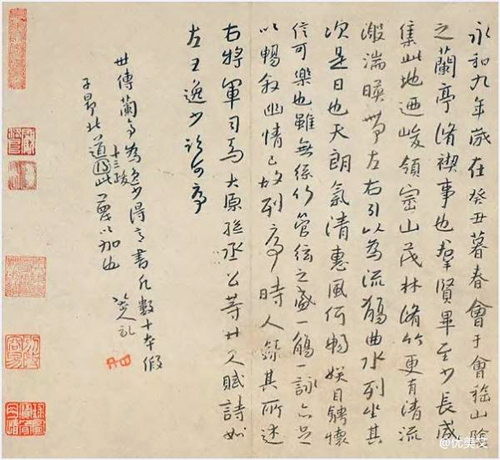 永和九年在癸丑暮春會于會稽山陰
之蘭亭脩禊事也羣賢畢至少長咸
集此地迺峻領崇山茂林脩竹更有清流
激湍暎帶左右引以為流觴曲水列坐其
次是日也天朗氣清惠風何暢娛目騁懷
信可樂也雖無絲竹管弦之盛一觴一詠亦足
以暢敘幽情已故列序時人錄其所述
右將軍司馬太原孫丞公等廿六人賦詩如
左王逸少
世傳蘭亭為逸少得意書凡數十本假
子昂十三跋北道
@优美客